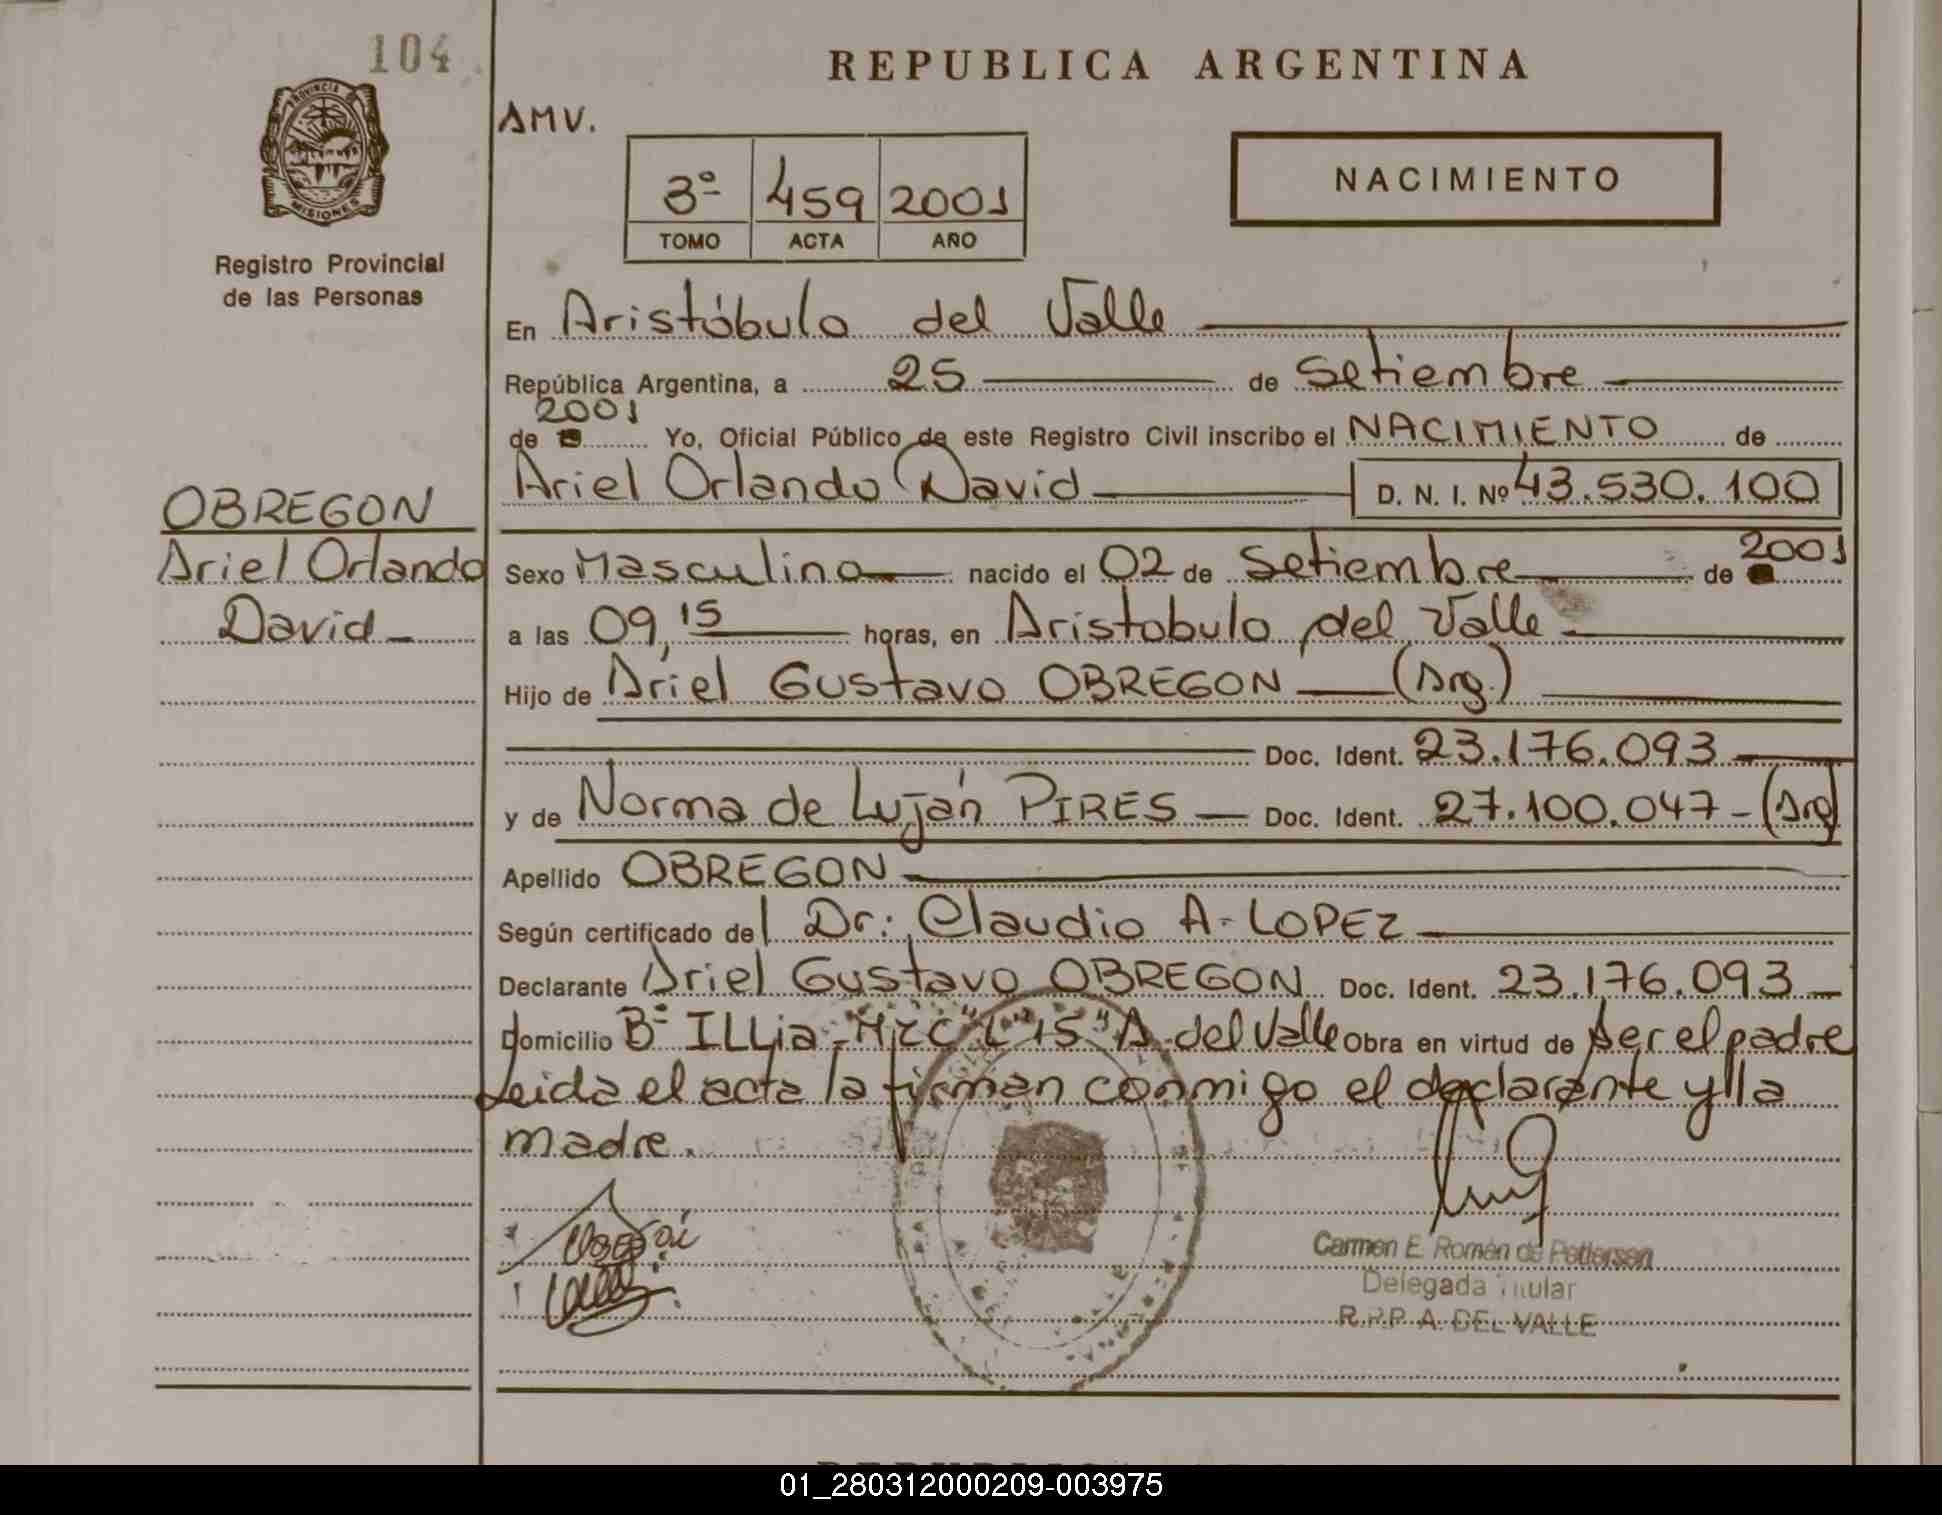 104
REPUBLICA ARGENTINA
AMV.
PROVINCIA DE
MISIONES
Registro Provincial
de las Personas
3º 459 2001
TOMO ACTA AÑO
NACIMIENTO
En Aristóbulo del Valle
República Argentina, a 25 de Setiembre
2001
de Yo, Oficial Público de este Registro Civil inscribo el NACIMIENTO de
Ariel Orlando David D. N. I. Nº 43.530.100
OBREGON
Ariel Orlando
David
Sexo Masculino nacido el 02 de Setiembre de 2001
a las 09,15 horas, en Aristobulo del Valle
Hijo de Ariel Gustavo OBREGON (Arg.)
Doc. Ident. 23.176.093
y de Norma de Luján PIRES Doc. Ident. 27.100.047 - (Arg)
Apellido OBREGON
Según certificado del Dr: Claudio A. LOPEZ
Declarante Ariel Gustavo OBREGON Doc. Ident. 23.176.093
Domicilio Bº ILLia A. del Valle Obra en virtud de ser el padre
Leida el acta la firman conmigo el declarante y la
madre.
Carmen E. Román de Pettersen
Delegada Titular
R.P.P. A. DEL VALLE
01_280312000209-003975